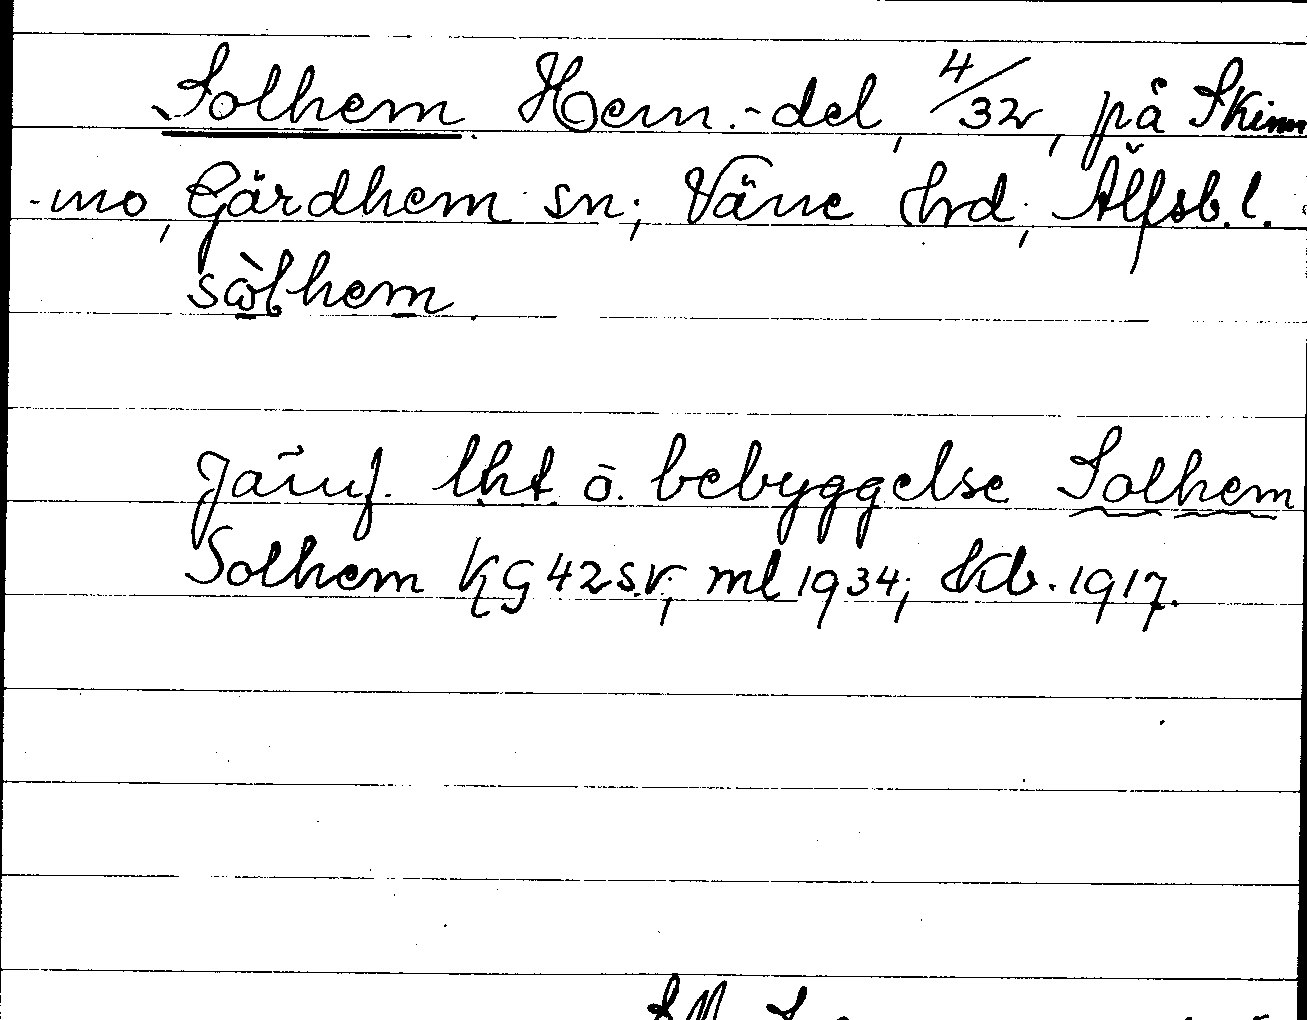 Solhem. Hem.-del, 4/32, på Skinn
-mo, Gärdhem sn; Väne hrd; Älfsb. l.
sὼlhem.
Jämf. lht o. bebyggelse Solhem
Solhem KG 42 s.v; ml 1934; Kb. 1917.